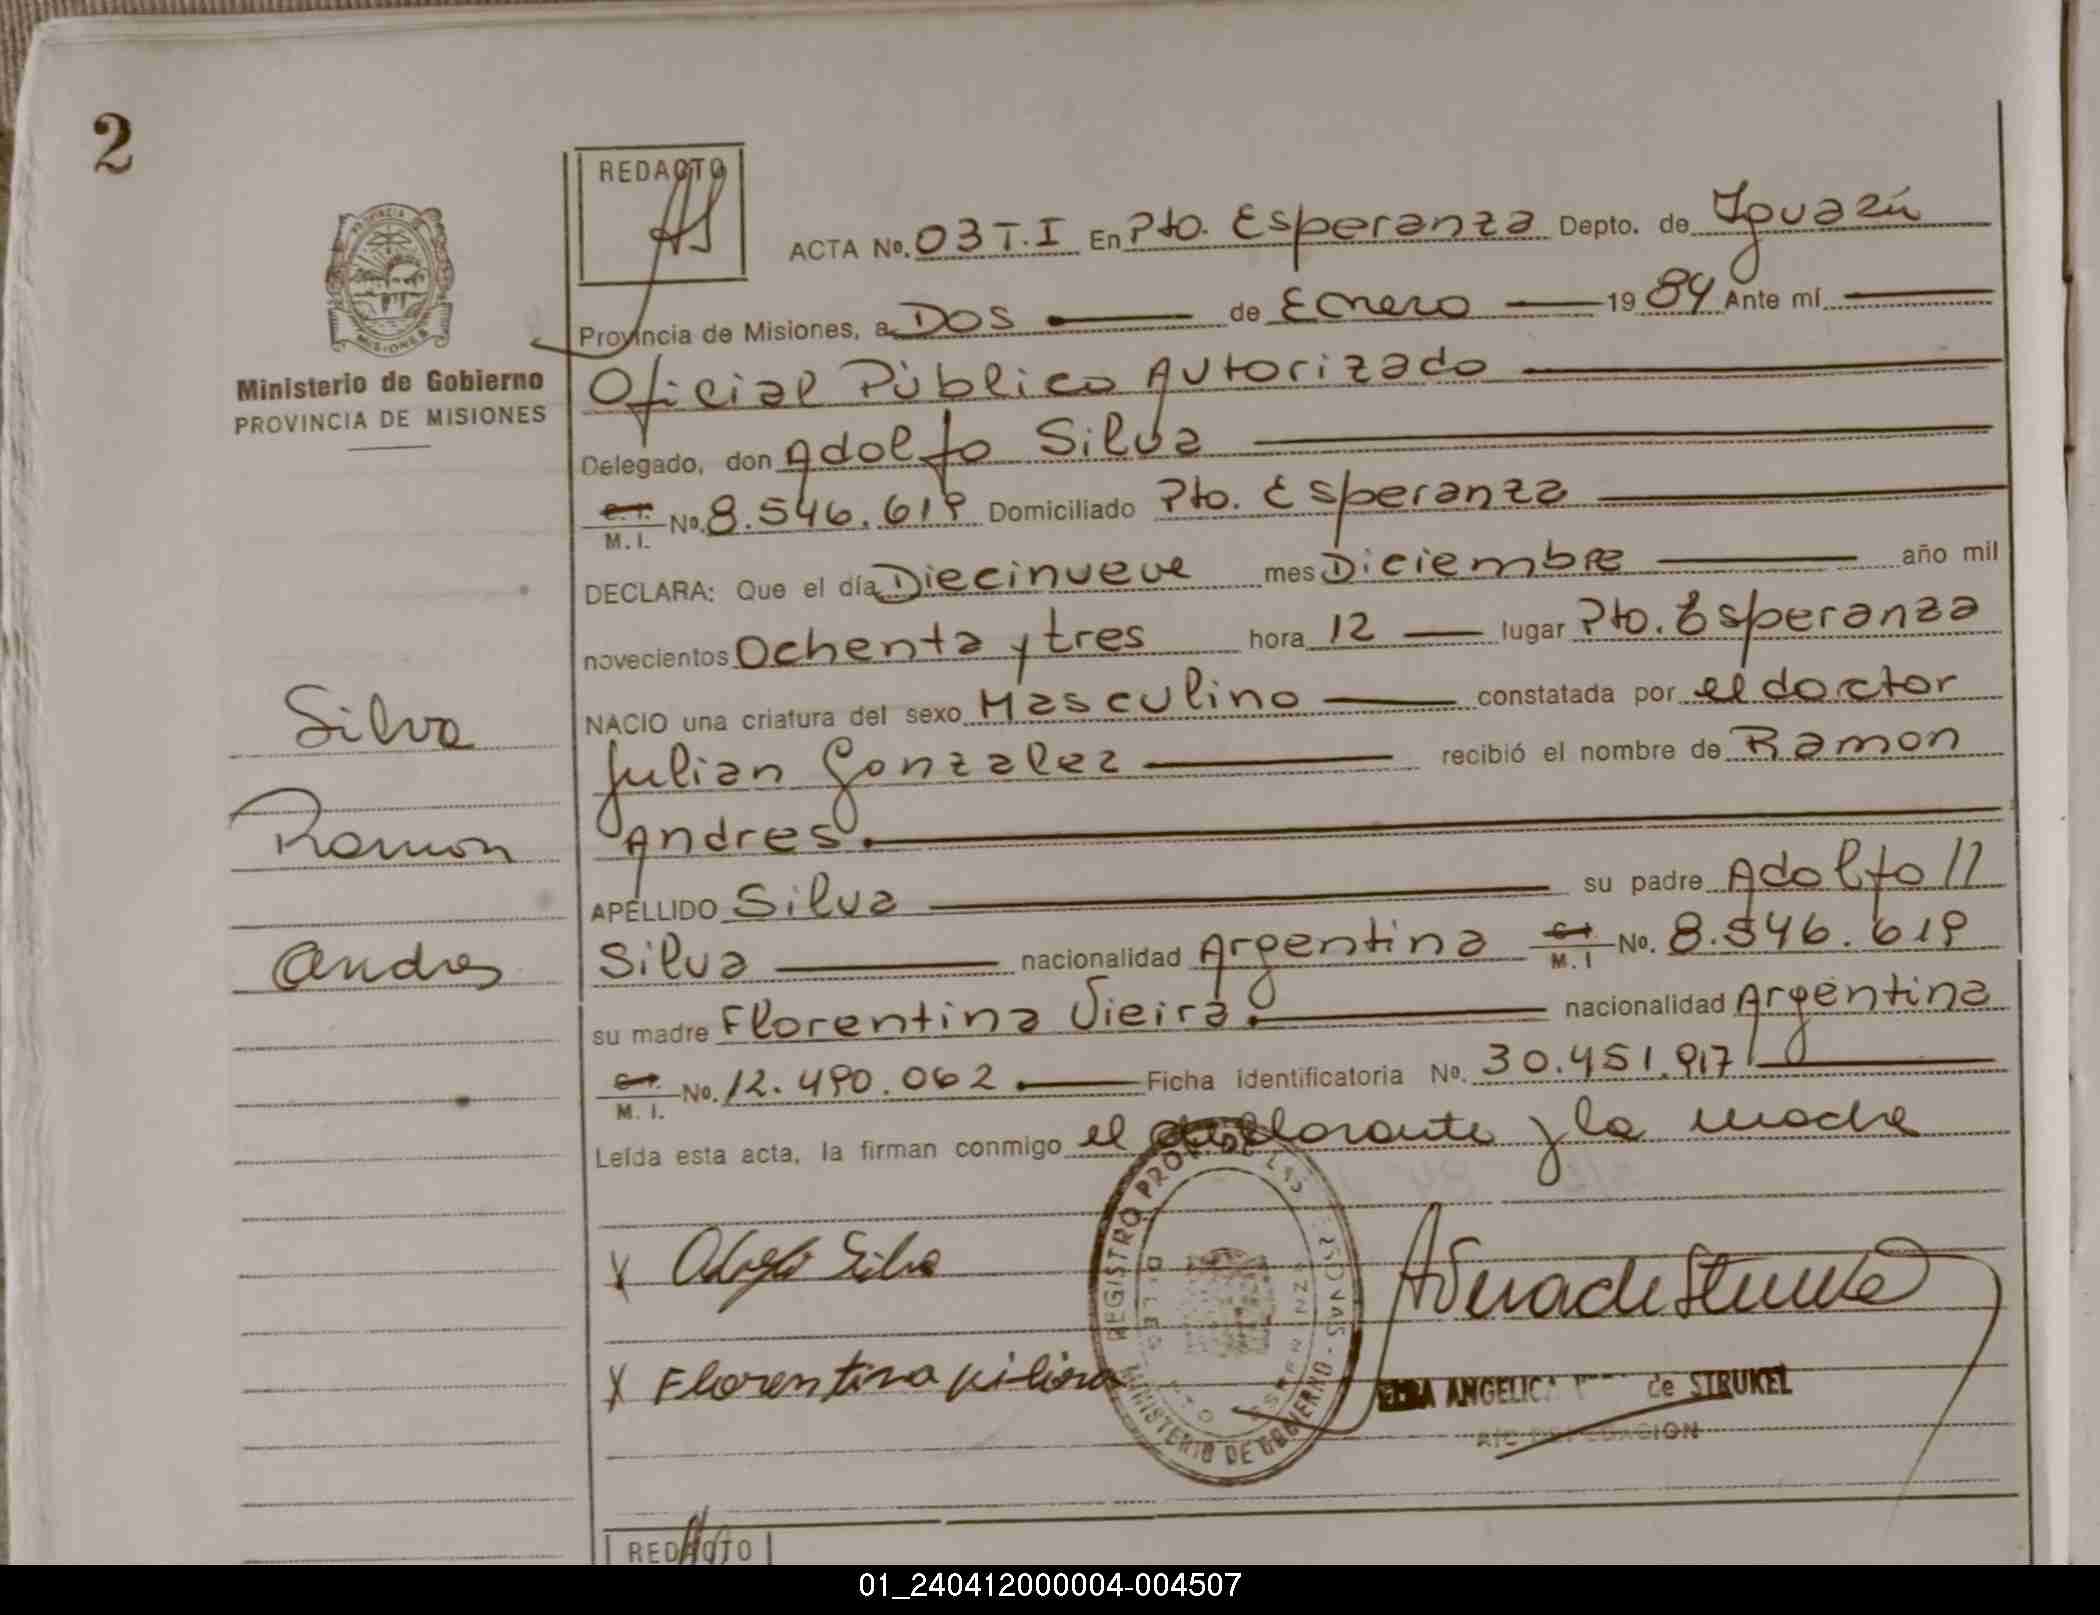 2
REDACTO
ACTA No. 03 T.I En Pto. Esperanza Depto. de Iguazú
Provincia de Misiones, a Dos de Enero 1984 Ante mí
Oficial Público Autorizado
Delegado, don Adolfo Silva
C.I. M.I. No. 8.546.619 Domiciliado Pto. Esperanza
DECLARA: Que el día Diecinueve mes Diciembre año mil
novecientos Ochenta y tres hora 12 lugar Pto. Esperanza
NACIO una criatura del sexo Masculino constatada por el doctor
Julian Gonzalez recibió el nombre de Ramon
Andres
APELLIDO Silva su padre Adolfo //
Silva nacionalidad Argentina C.I. M.I No. 8.546.619
su madre Florentina Vieira nacionalidad Argentina
C.I. M.I. No. 12.490.062 Ficha identificatoria No. 30.451.917
Leída esta acta, la firman conmigo el declarante y la madre
PROVINCIA DE MISIONES
Ministerio de Gobierno
PROVINCIA DE MISIONES
Silva
Ramon
Andres
X Adolfo Silva
X Florentina
REGISTRO PROV. DE LAS PERSONAS - MINISTERIO DE GOBIERNO
ELBA ANGELICA de STRUKEL
REDACTO
01_240412000004-004507